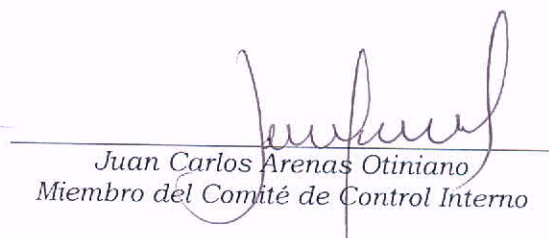 Juan Carlos Arenas Otiniano
Miembro del Comité de Control Interno